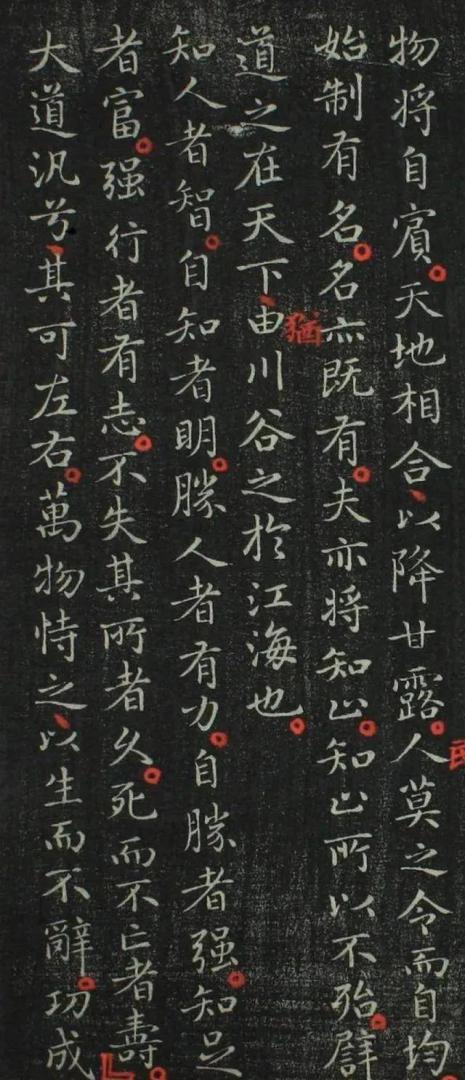 物将自賓。天地相合、以降甘露。人莫之令而自均。
始制有名。名亦既有。夫亦将知止。知止所以不殆。譬
道之在天下、由川谷之於江海也。
猶
知人者智。自知者明。勝人者有力。自勝者强。知足
者富。强行者有志。不失其所者久。死而不亡者壽。
大道汎兮、其可左右。萬物恃之、以生而不辭。功成